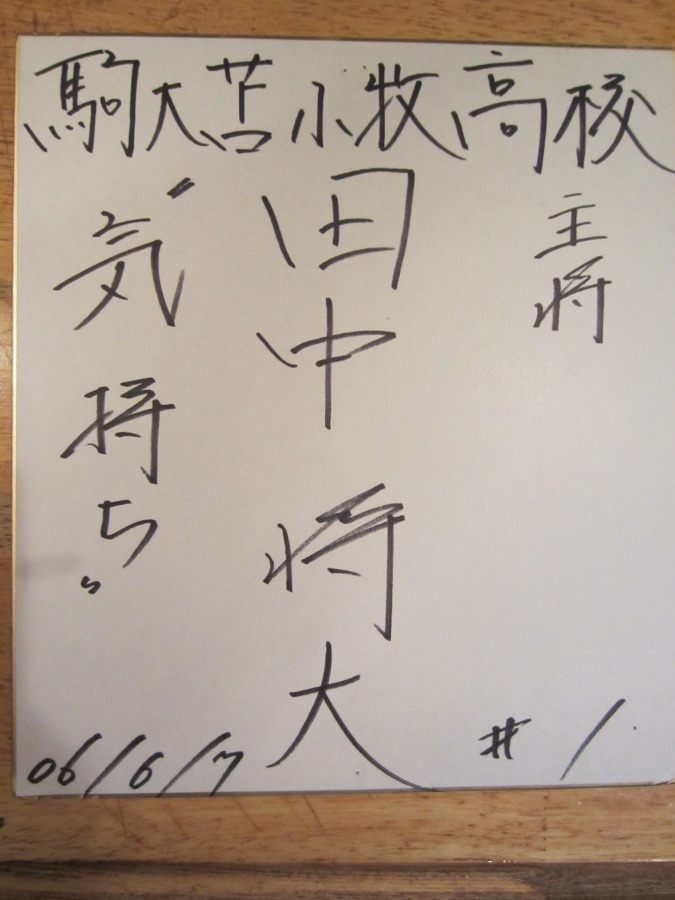 駒大苫小牧高校
主将
田中将大
"気持ち"
#1
06/6/7